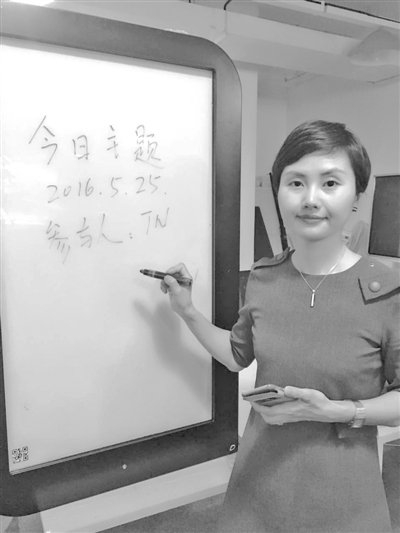 今日主题
2016.5.25.
参与人：